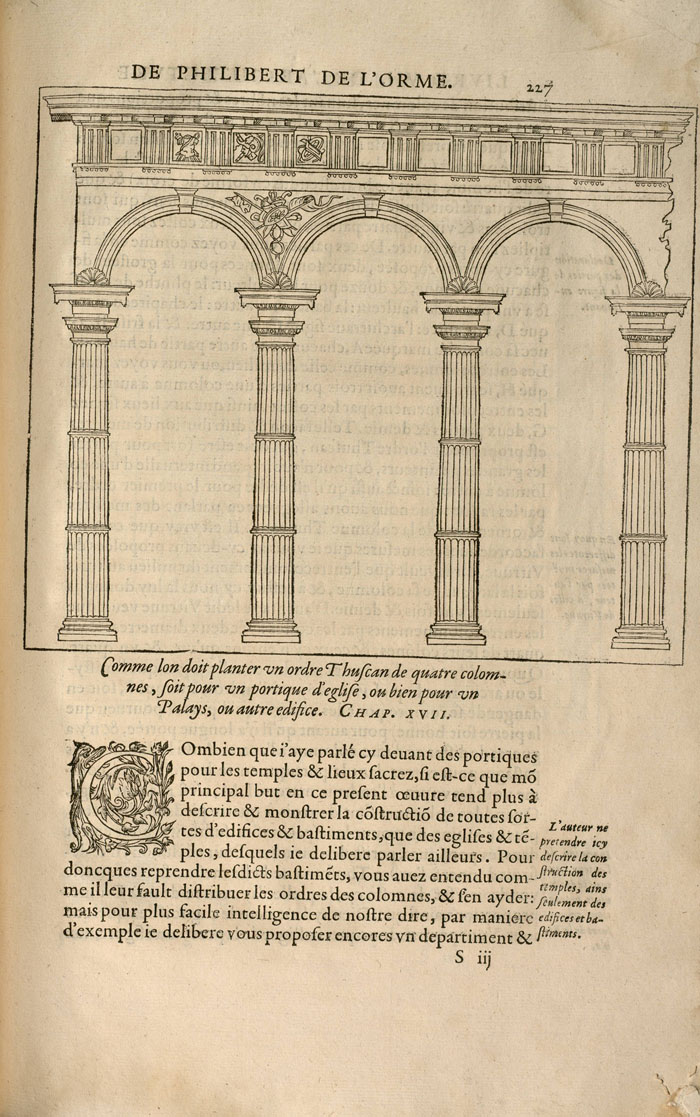 DE PHILIBERT DE L'ORME. 227
Comme lon doit planter vn ordre Thuſcan de quatre colom-
nes, ſoit pour vn portique d'egliſe, ou bien pour vn
Palays, ou autre edifice. CHAP. XVII.
COmbien que i'aye parlé cy deuant des portiques
pour les temples & lieux ſacrez, ſi eſt-ce que mõ
principal but en ce preſent œuure tend plus à
deſcrire & monſtrer la cõſtructiõ de toutes ſor-
tes d'edifices & baſtiments, que des egliſes & tẽ-
ples, deſquels ie delibere parler ailleurs. Pour
doncques reprendre leſdicts baſtimẽts, vous auez entendu com-
me il leur fault diſtribuer les ordres des colomnes, & ſ'en ayder:
mais pour plus facile intelligence de noſtre dire, par maniere
d'exemple ie delibere vous propoſer encores vn departiment &
L'auteur ne
pretendre icy
deſcrire la con
ſtruction des
temples, ains
ſeulement des
edifices et ba-
ſtiments.
S iij